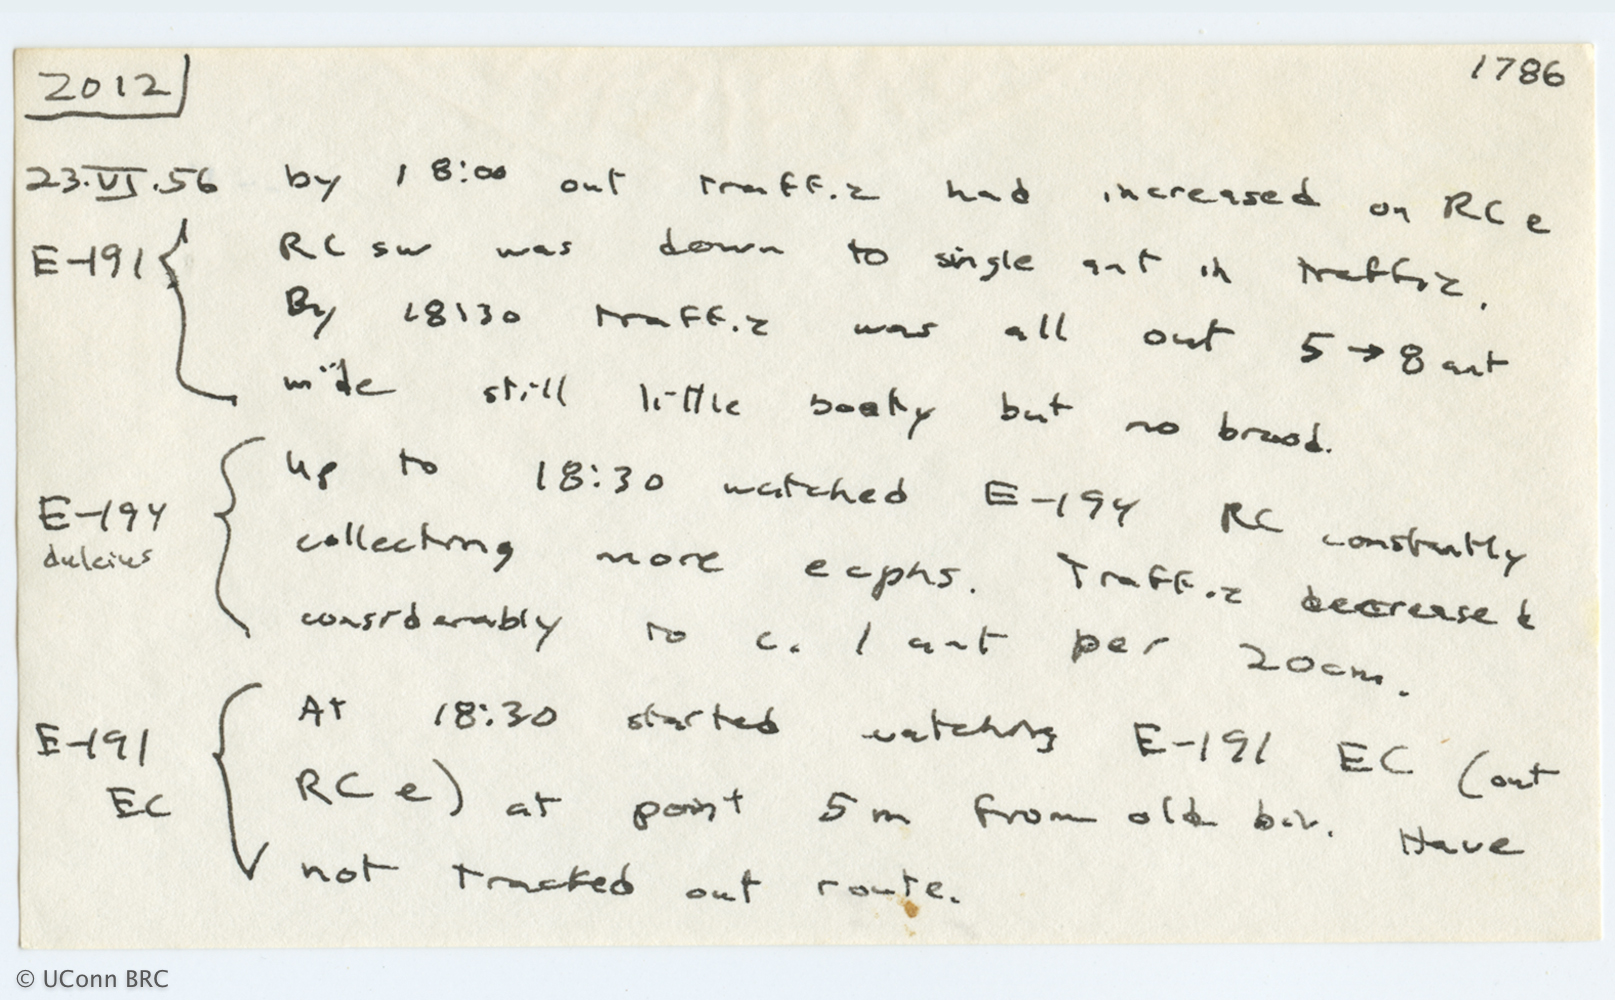 2012
1786
23.VI.56 by 18:00 out traffic had increased on RC e
E-191 RC sw was down to single ant in traffic.
By 18:30 traffic was all out 5→8 ant
wide still little booty but no brood.
Up to 18:30 watched E-194 RC constantly
E-194 collecting more ecphs. Traffic decreased
dulcius considerably to c. 1 ant per 20cm.
At 18:30 started watching E-191 EC (out
E-191 RC e) at point 5m from old biv. Have
EC not tracked out route.
© UConn BRC